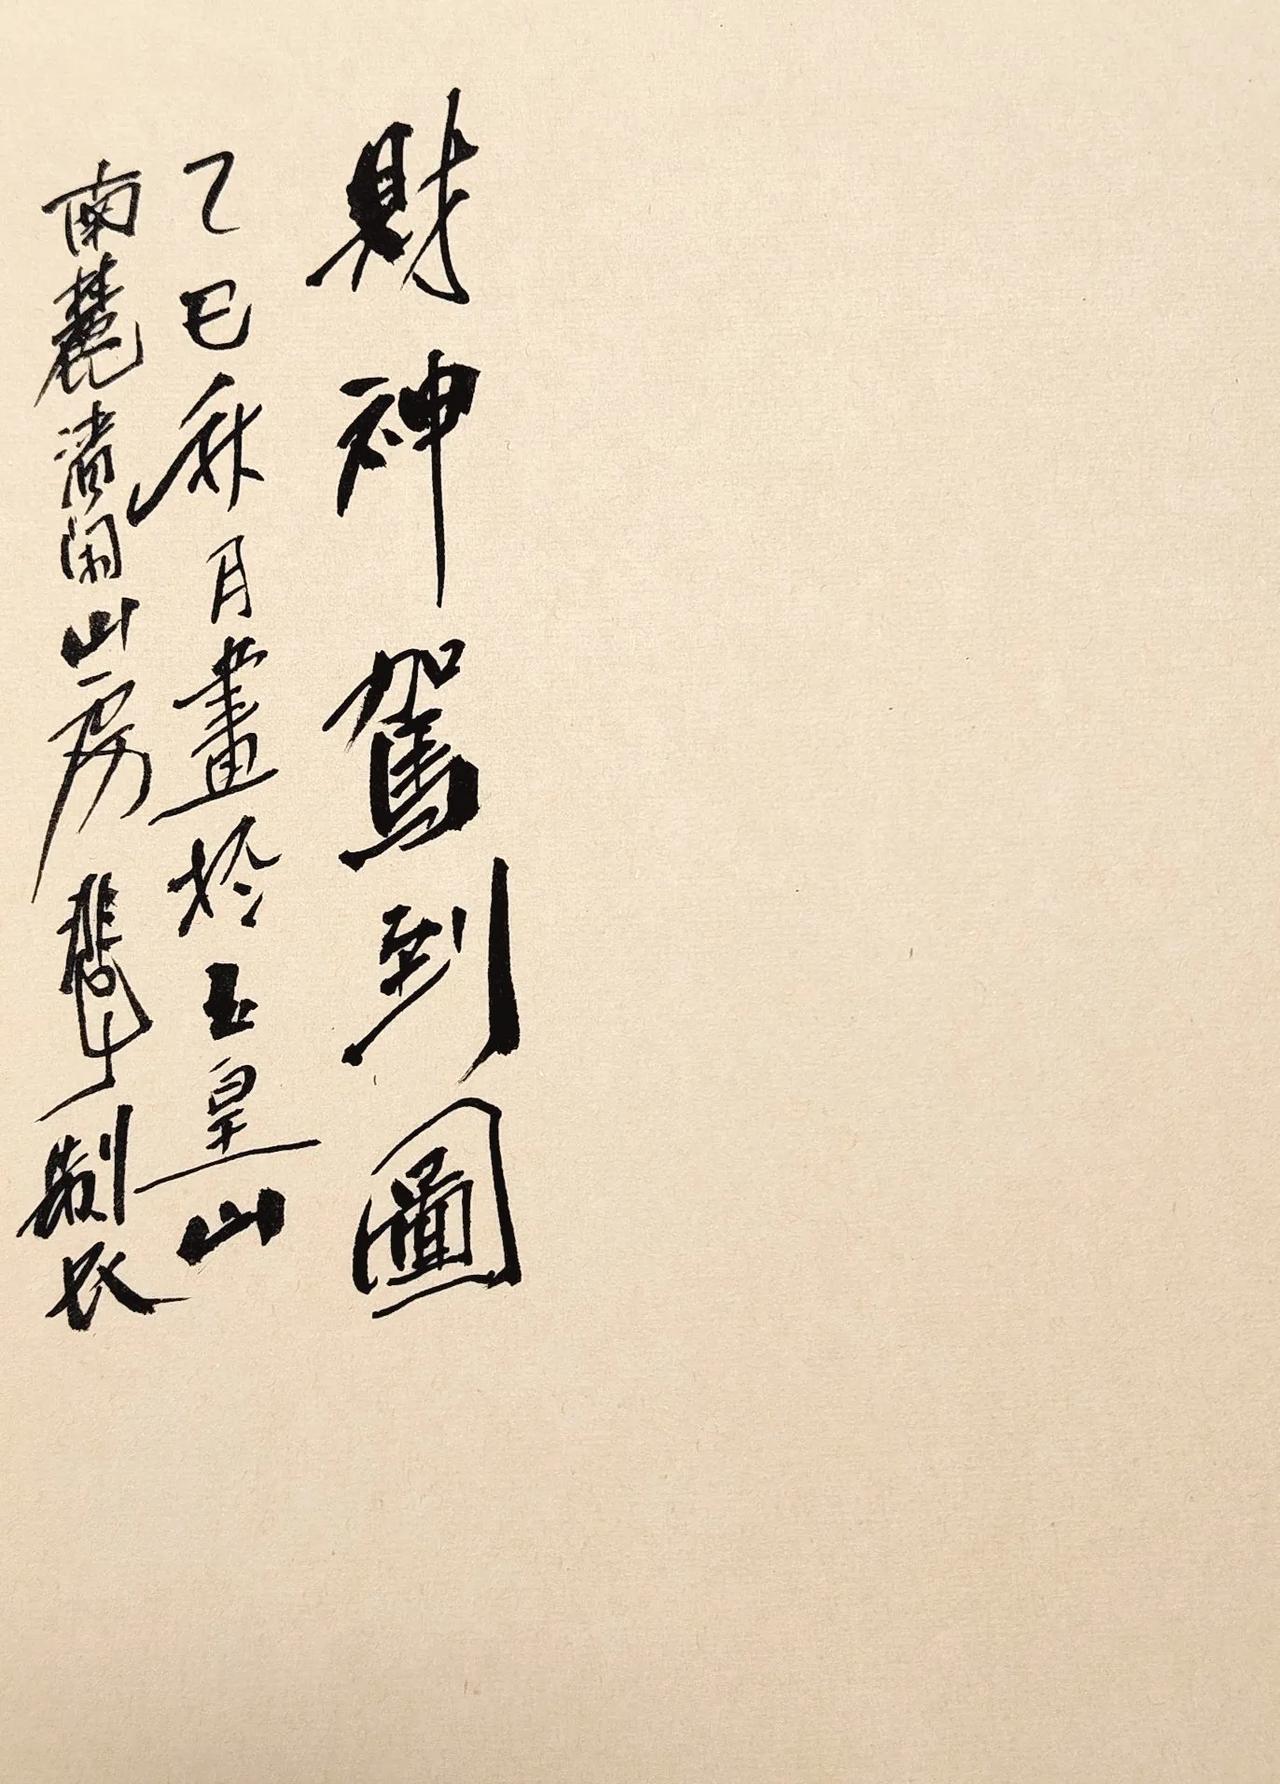 財神駕到圖
乙巳秋月畫於玉皇山
南麓清閑山房